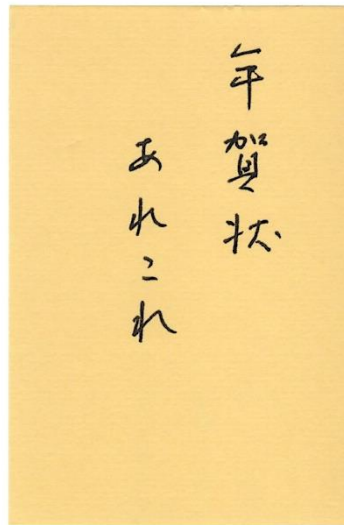 年賀状
あれこれ